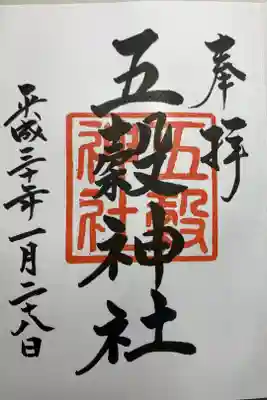 奉拝
五穀神社
五穀神社
平成三十年一月二十八日